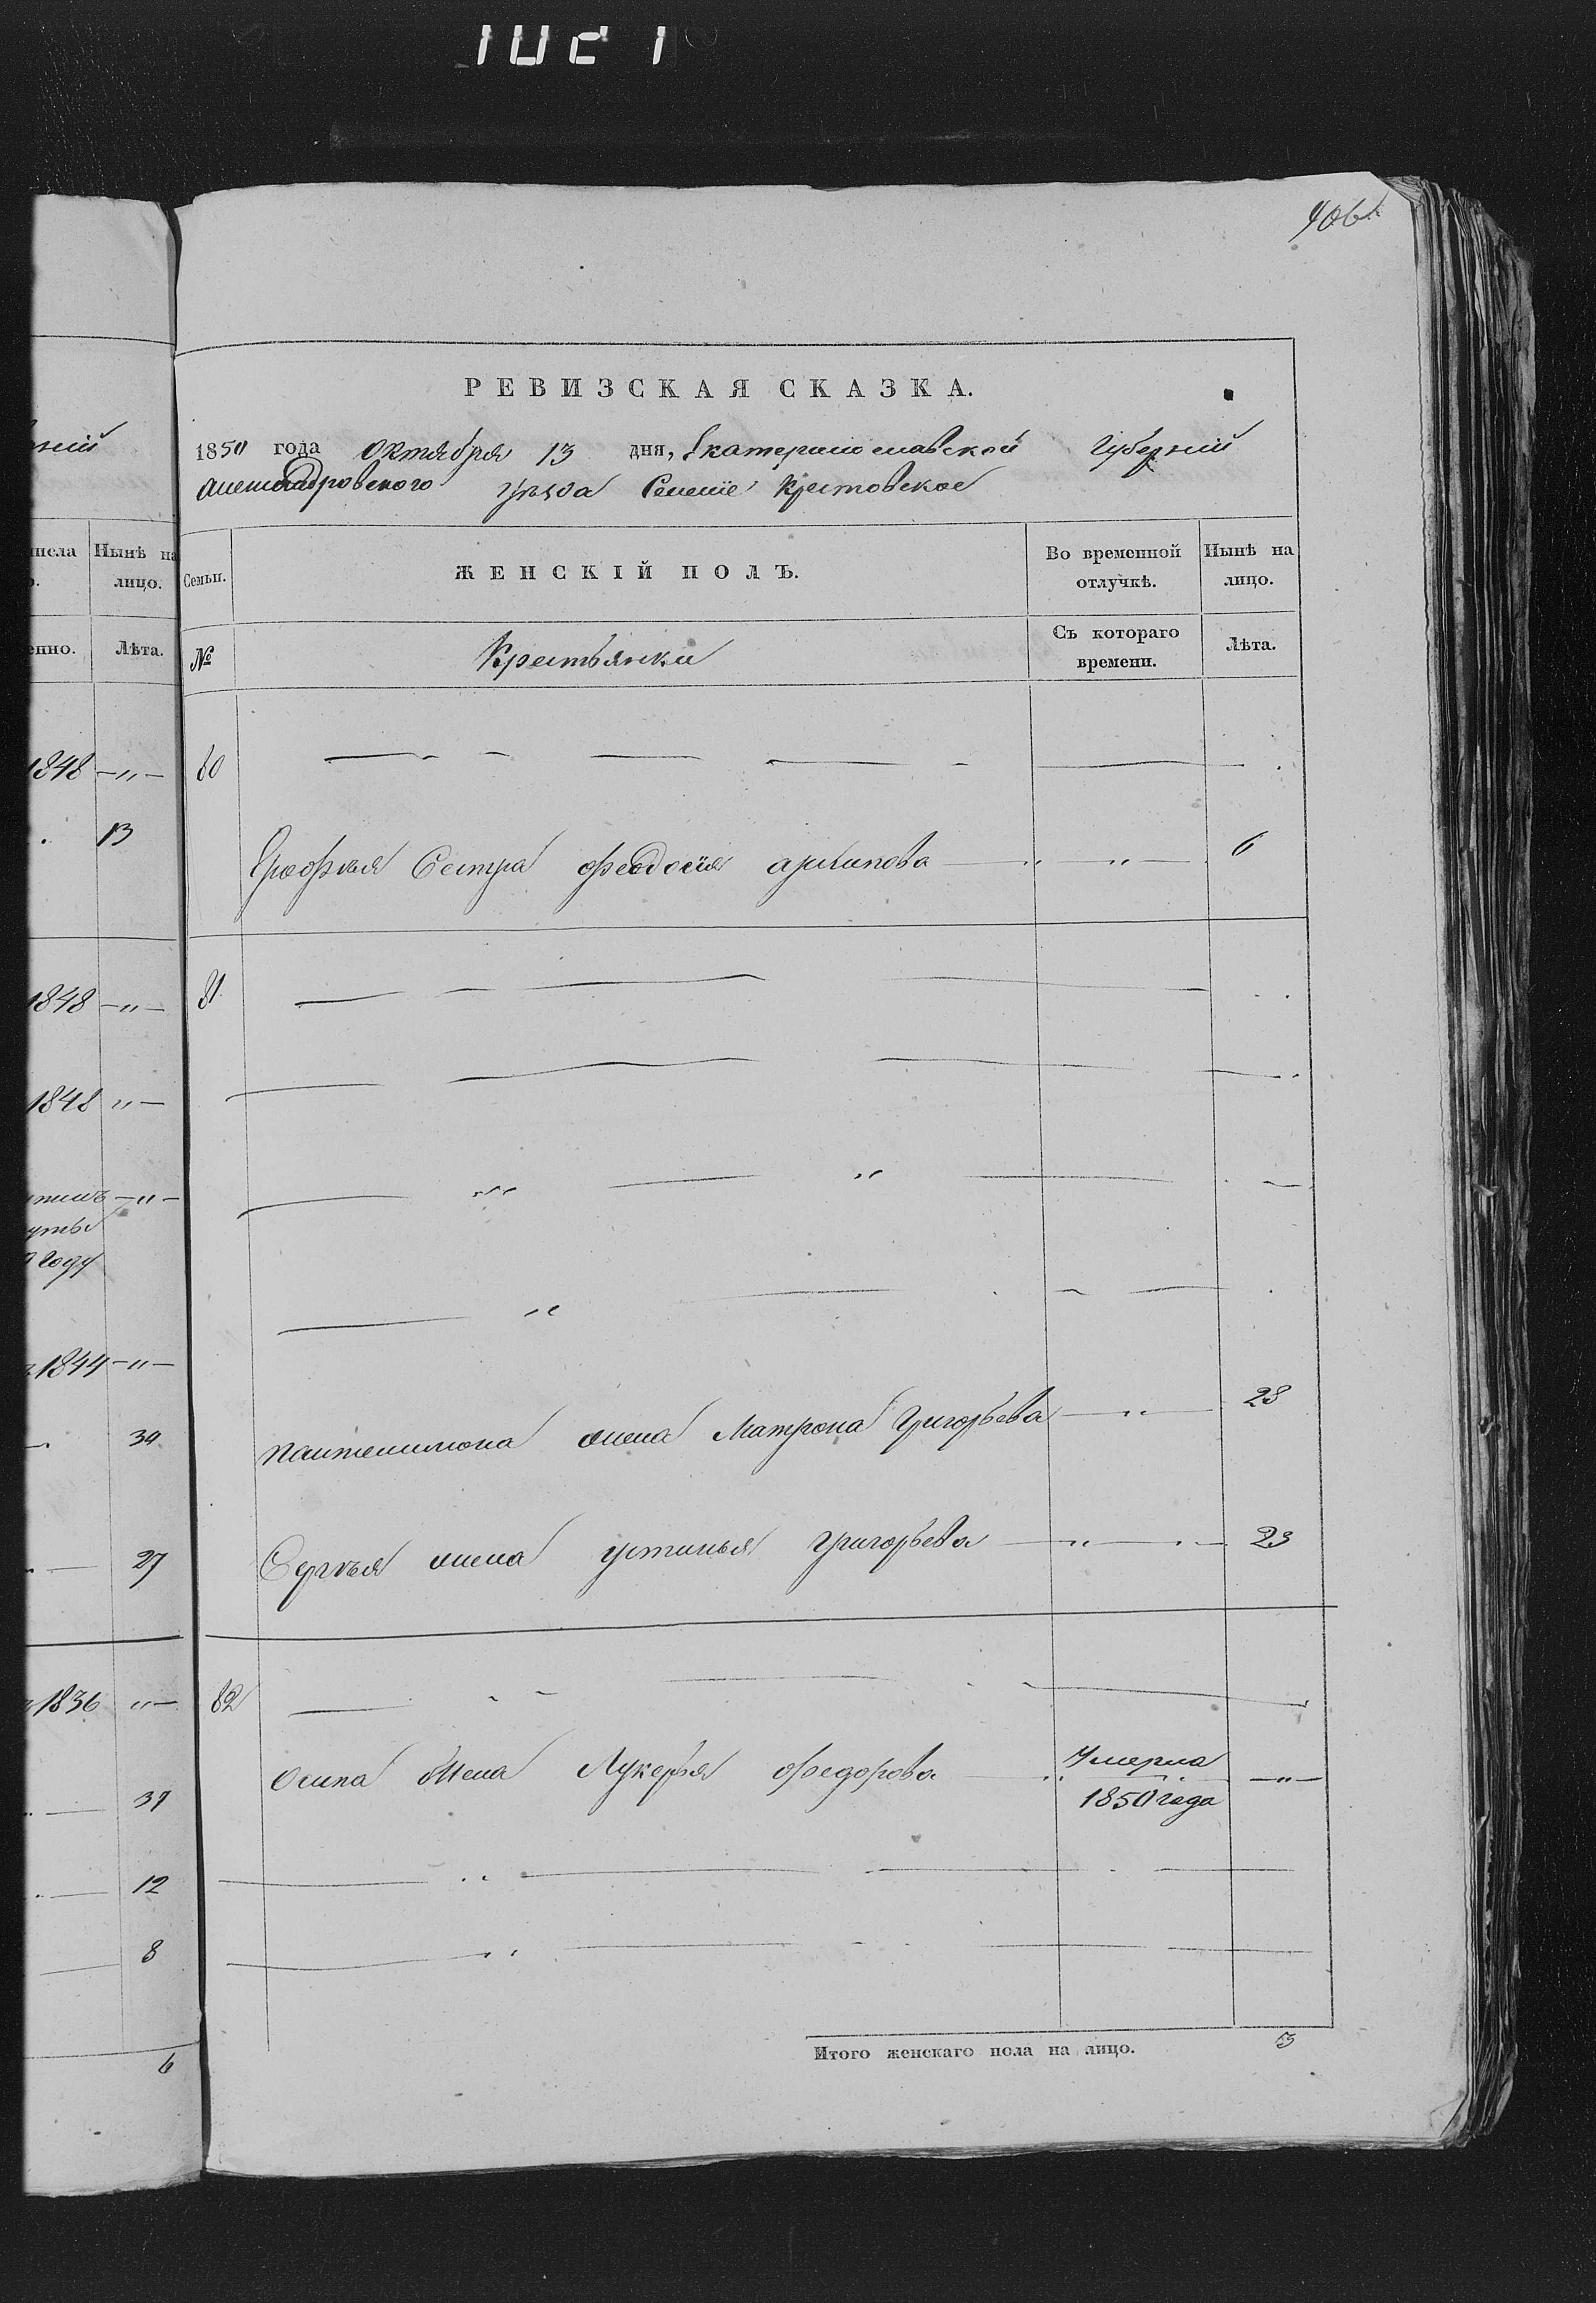 406
РЕВИЗСКАЯ СКАЗКА.
1850 года Октября 13 дня, Екатеринославской Губерніи
Александровского уѣзда Селеніе Крестовское
Семьи.
ЖЕНСКІЙ ПОЛЪ.
Во временной отлучкѣ.
Нынѣ на лицо.
№
Крестьянки
Съ котораго времени.
Лѣта.
80
Ерофѣя Сестра Феодосія архипова 6
81
пантелимона жена Матрона Григорьева 28
Сергѣя жена устинья григорьева 23
82
Осипа жена Лукерья Федорова Умерла 1850 года
Итого женскаго пола на лицо. 3
Нынѣ на лицо.
Лѣта.
1848
13
1848
1848
году
1844
30
27
1836
37
12
8
6